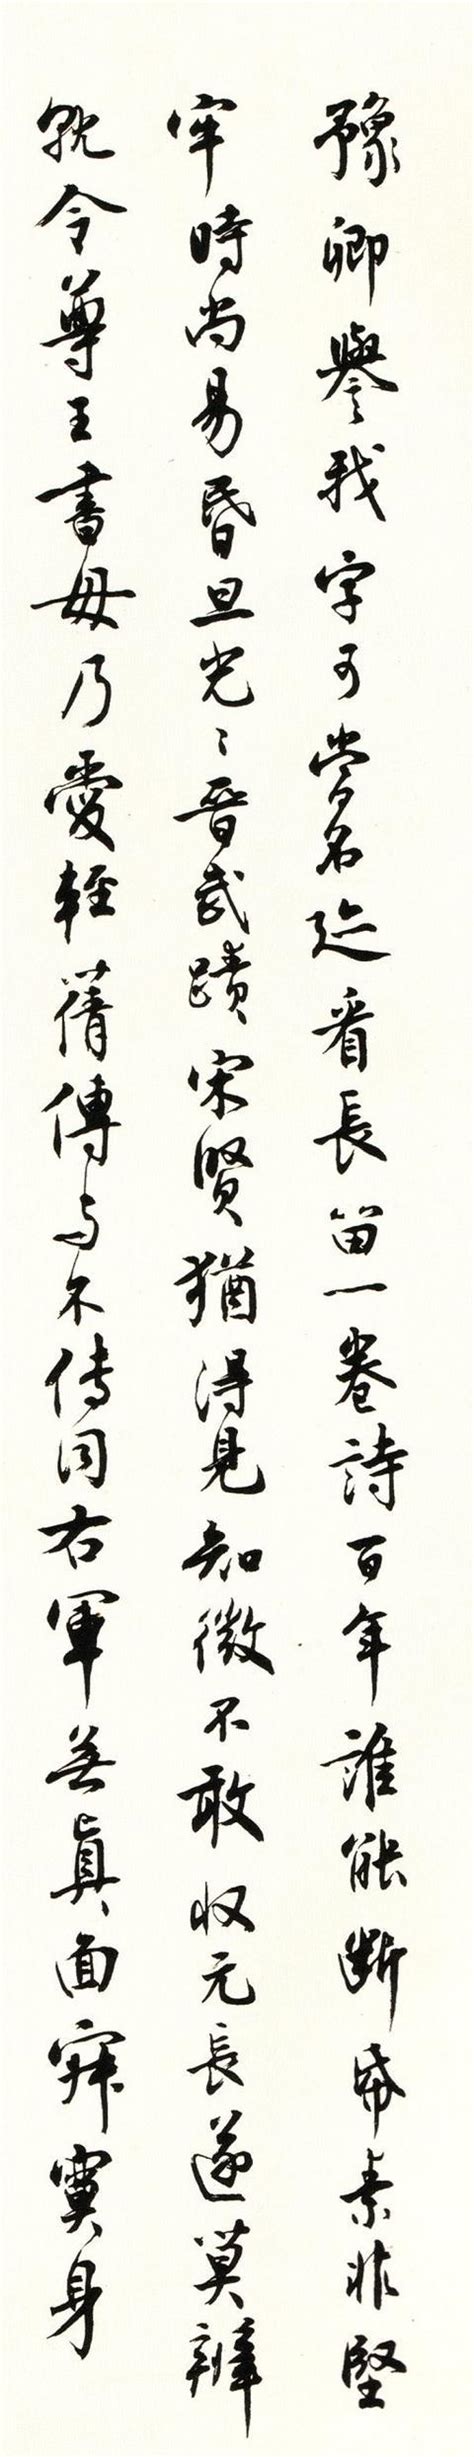 豫卿譽我字可當名跡看長留一卷詩百年誰能斷帋素非堅
牢時尚易昏旦光〻晋武蹟宋賢猶得見知微不敢收元長遂莫辨
孰令尊王書毋乃愛輕蒨傳与不传同右軍無真面寂寞身